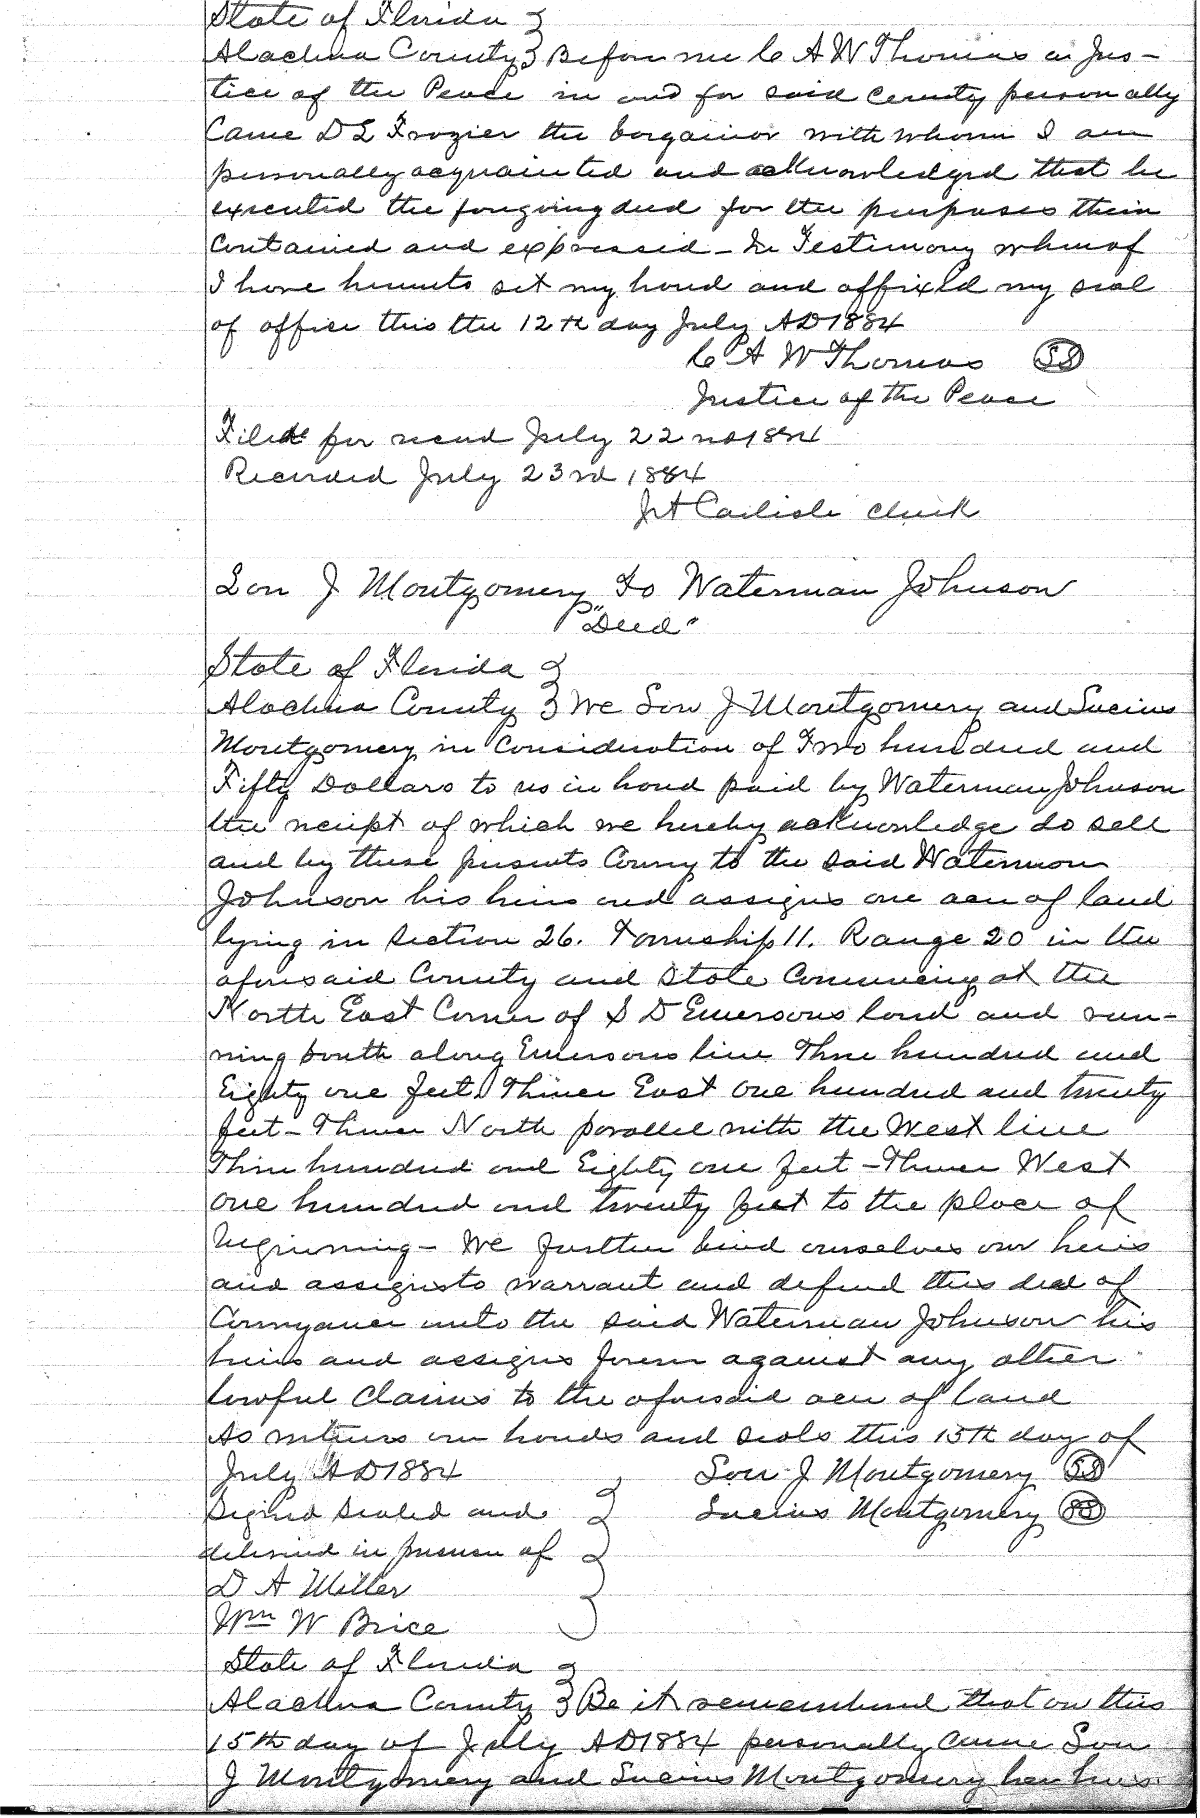 State of Florida }
Alachua County } Before me C A W Thomas a Jus-
tice of the Peace in and for said County personally
Came D L Frazier the bargainor with whom I am
personally acquainted and acknowledged that he
executed the foregoing deed for the purposes therein
Contained and expressed - In Testimony whereof
I have hereunto set my hand and affixed my seal
of office this the 12th day July AD 1884
C A W Thomas SS
Justice of the Peace
Filed for record July 22nd 1884
Recorded July 23rd 1884
J A Carlisle clerk
Lou J Montgomery To Waterman Johnson
"Deed"
State of Florida }
Alachua County } We Lou J Montgomery and Lucius
Montgomery in Consideration of Two hundred and
Fifty Dollars to us in hand paid by Waterman Johnson
the receipt of which we hereby acknowledge do sell
and by these presents Convey to the said Waterman
Johnson his heirs and assigns one acre of land
lying in Section 26. Township 11. Range 20 in the
aforesaid County and State Commencing at the
North East Corner of S D Emersons land and run-
ning South along Emersons line Three hundred and
Eighty one feet Thence East one hundred and twenty
feet - Thence North parallel with the West line
Three hundred and Eighty one feet - Thence West
one hundred and twenty feet to the place of
beginning - We further bind ourselves our heirs
and assigns to warrant and defend this deed of
Conveyance unto the said Waterman Johnson his
heirs and assigns forever against any other
lawful Claims to the aforesaid acre of land
As witness our hands and seals this 15th day of
July AD 1884 Lou J Montgomery SS
Signed Sealed and Lucius Montgomery SS
delivered in presence of
D A Miller
Wm W Brice
State of Florida }
Alachua County } Be it remembered that on this
15th day of July AD 1884 personally came Lou
J Montgomery and Lucius Montgomery her hus